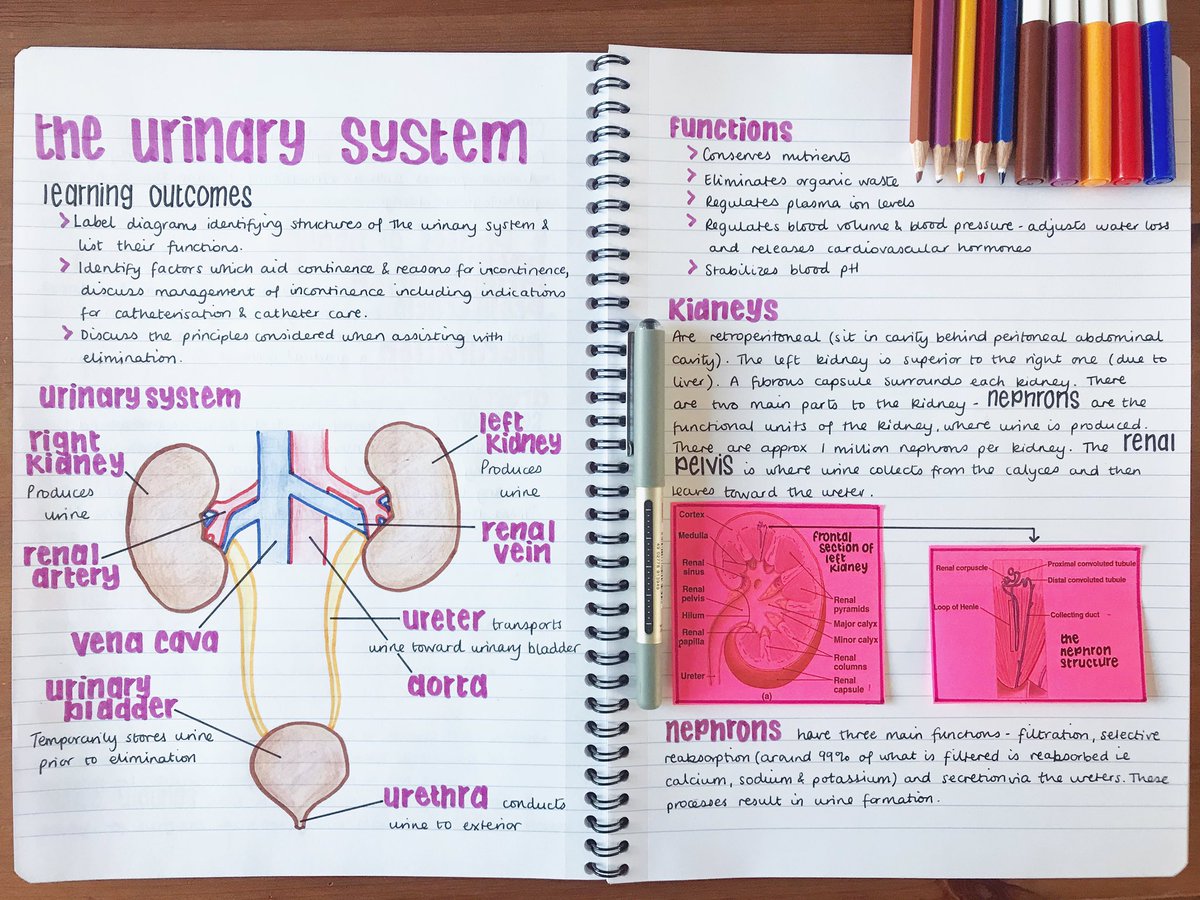 the urinary system
learning outcomes
> Label diagrams identifying structures of the urinary system &
list their functions.
> Identify factors which aid continence & reasons for incontinence,
discuss management of incontinence including indications
for catheterisation & catheter care.
> Discuss the principles considered when assisting with
elimination.
urinary system
right
kidney
Produces
urine
left
kidney
Produces
urine
renal
artery
renal
vein
vena cava
ureter transports
urine toward urinary bladder
aorta
urinary
bladder
Temporarily stores urine
prior to elimination
urethra conducts
urine to exterior
Functions
> Conserves nutrients
> Eliminates organic waste
> Regulates plasma ion levels
> Regulates blood volume & blood pressure - adjusts water loss
and releases cardiovascular hormones
> Stabilizes blood pH
Kidneys
Are retroperitoneal (sit in cavity behind peritoneal abdominal
cavity). The left kidney is superior to the right one (due to
liver). A fibrous capsule surrounds each kidney. There
are two main parts to the kidney - nephrons are the
functional units of the kidney, where urine is produced.
There are approx 1 million nephrons per kidney. The renal
pelvis is where urine collects from the calyces and then
leaves toward the ureter.
Cortex
Medulla
Renal
sinus
Renal
pelvis
Hilum
Renal
papilla
Ureter
frontal
section of
left
kidney
Renal
pyramids
Major calyx
Minor calyx
Renal
columns
Renal
capsule
(a)
Renal corpuscle
Proximal convoluted tubule
Distal convoluted tubule
Loop of Henle
Collecting duct
the
nephron
structure
nephrons have three main functions - filtration, selective
reabsorption (around 99% of what is filtered is reabsorbed ie
calcium, sodium & potassium) and secretion via the ureters. These
processes result in urine formation.